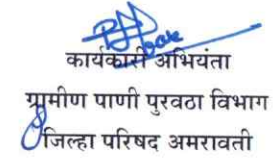 कार्यकारी अभियंता
ग्रामीण पाणी पुरवठा विभाग
जिल्हा परिषद अमरावती